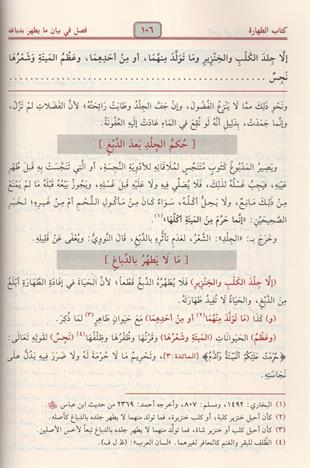 كتاب الطهارة ١٠٦ فصل في بيان ما يطهر بدباغه
إلَّا جِلدَ الكَلْبِ والخِنْزِيرِ وَمَا تَوَلَّدَ مِنْهُمَا، أو مِنْ أحَدِهِمَا، وعَظْمُ المَيْتَةِ وشَعْرُهَا
نَجِسٌ
ونَحْوِ ذَلِكَ مِمَّا لا يَنْزِعُ الفُضُولَ، وإنْ جَفَّ الجِلْدُ وطَابَتْ رَائِحَتُهُ؛ لأنَّ الفَضَلَاتِ لَمْ تَزُلْ،
وإنَّمَا جَمَدَتْ، بِدَلِيلِ أنَّهُ لَو نُقِعَ فِي المَاءِ عَادَتْ إلَيْهِ العُفُونَةُ.
[ حُكمُ الجِلْدِ بَعدَ الدَّبْغِ ]
ويَصِيرُ المَدْبُوغُ كَثَوبٍ مُتَنَجِّسٍ لِمُلاقَاتِهِ للأدْوِيَةِ النَّجِسَةِ، أو الَّتِي تَنَجَّسَتْ بِهِ قَبْلَ طُهْرِ
عَيْنِهِ، فَيَجِبُ غَسْلُهُ لذَلكَ، فَلا يُصَلَّى فِيهِ ولَا عَلَيهِ قَبلَ غَسْلِهِ، ويَجُوزُ بَيْعُهُ قَبْلَهُ مَا لَم يَمْنَعْ
مِنْ ذَلكَ مَانِعٌ، ولَا يَحِلُّ أكْلُهُ، سَوَاءٌ كَانَ مِنْ مَأكُولِ اللَّحمِ أم مِنْ غَيرِهِ؛ لخَبَرِ
الصَّحِيحَيْنِ: «إنَّمَا حَرُمَ مِنَ المَيْتَةِ أكْلُهَا»(١).
وخَرَجَ بـ: «الجِلْدِ»: الشَّعْرُ، لعَدَمِ تَأثُّرِهِ بالدَّبْغِ، قَالَ النَّوَوِيُّ: ويُعْفَى عَنْ قَلِيلِهِ.
[ مَا لَا يَطْهُرُ بِالدِّبَاغِ ]
(إلَّا جِلْدَ الكَلْبِ والخِنْزِيرِ) فَلا يُطَهِّرُهُ الدَّبْغُ قَطْعاً؛ لأنَّ الحَيَاةَ فِي إفَادَةِ الطَّهَارَةِ أبْلَغُ
مِنَ الدَّبْغِ، والحَيَاةُ لَا تُفِيدُ طَهَارَتَهُ.
(و) كَذَا (مَا تَوَلَّدَ مِنْهُمَا(٢) أو مِنْ أَحَدِهِمَا) مَعَ حَيَوانٍ طَاهِرٍ(٣) لمَا ذُكِرَ.
(وعَظْمُ) الحَيَوَانَاتِ (المَيْتَةِ وشَعْرُهَا) وقَرْنُهَا وظُفْرُهَا وظِلْفُهَا(٤) (نَجِسٌ) لقَولِهِ تَعَالَى:
﴿حُرِّمَتْ عَلَيْكُمُ الْمَيْتَةُ وَالدَّمُ﴾ [المائدة: ٣]، وتَحْرِيمُ مَا لَا حُرْمَةَ لَهُ ولَا ضَرَرَ فِيهِ يَدُلُّ عَلَى
نَجَاسَتِهِ.
(١) البخاري: ١٤٩٢، ومسلم: ٨٠٧، وأخرجه أحمد: ٢٣٦٩ من حديث ابن عباس
(٢) كأن أحبل خنزير كلبة، أو كلب خنزيرة، فما تولد منهما لا يطهر جلده بالدباغ كأصله.
(٣) كأن أحبل كلب أو خنزير شاة، فما تولد منهما لا يطهر جلده بالدباغ تبعاً لأخس الأصلين.
(٤) الظّلف للبقر والغنم كالحافر لغيرهما. «لسان العرب»: (ظ ل ف).